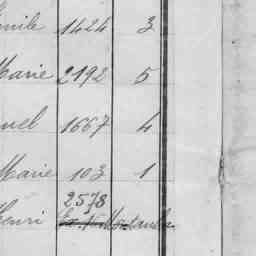 mile 1424 3
Marie 2192 5
uel 1667 4
Marie 103 1
2578
Henri